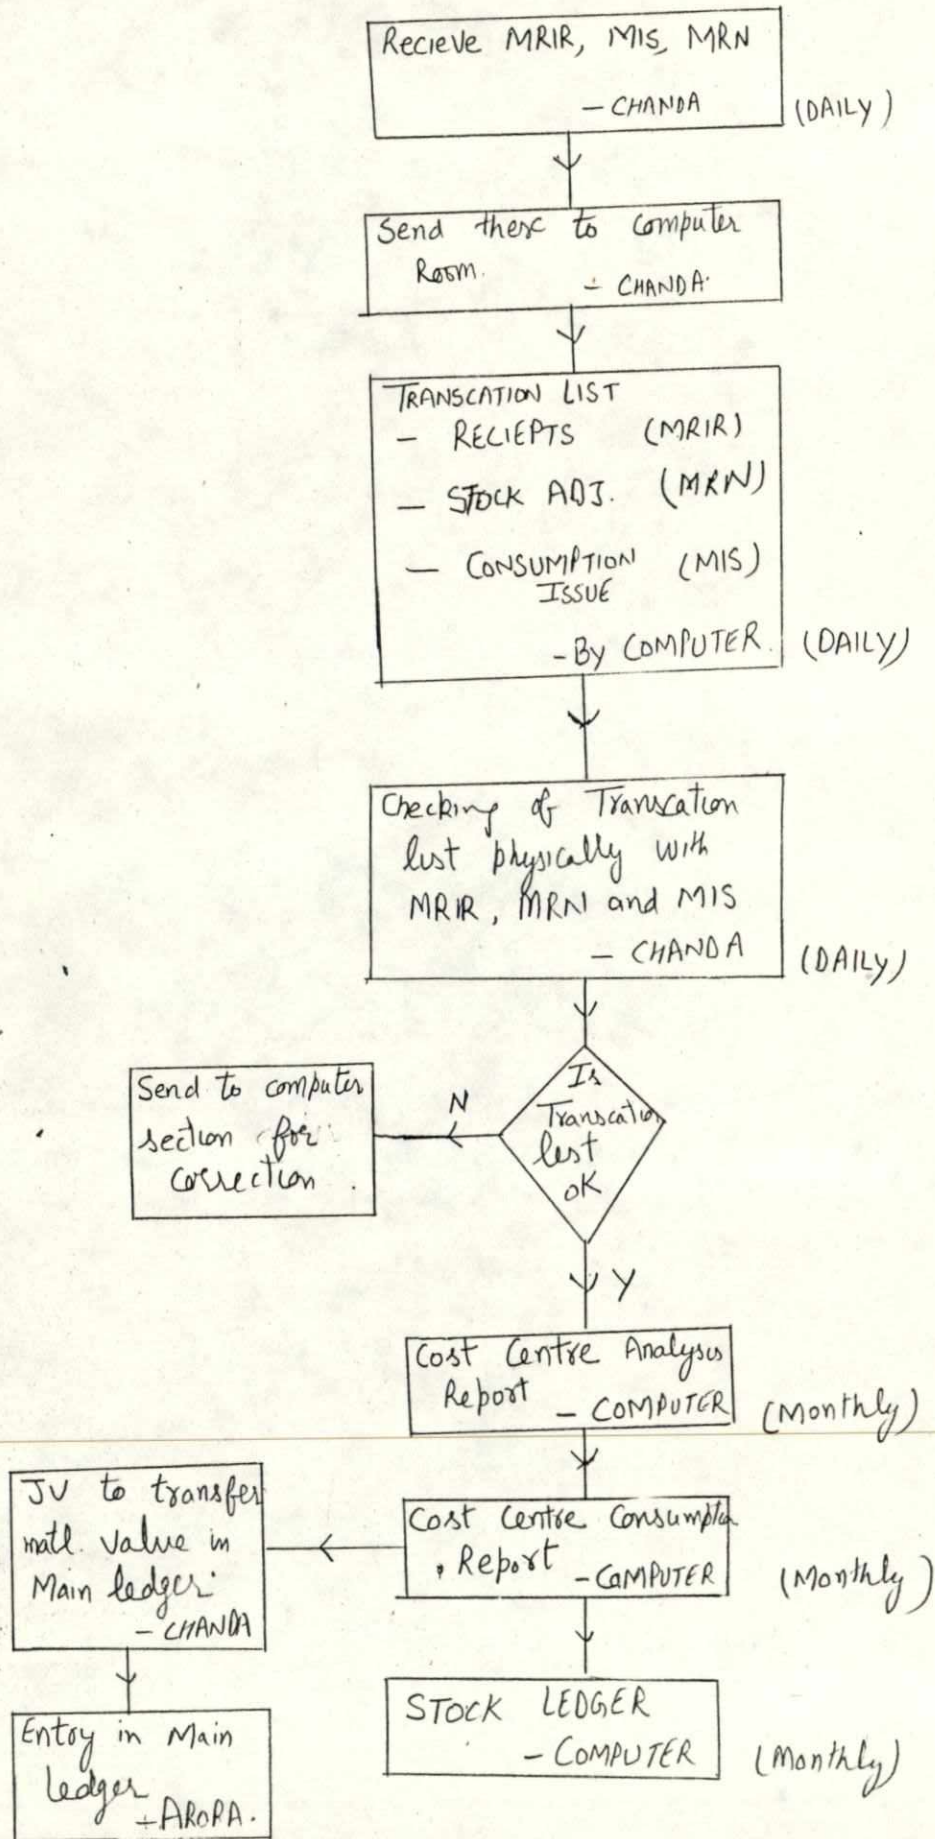 Recieve MRIR, MIS, MRN
- CHANDA (DAILY)
Send these to computer
Room. - CHANDA.
TRANSCATION LIST
- RECIEPTS (MRIR)
- STOCK ADJ. (MRN)
- CONSUMPTION (MIS)
ISSUE
- By COMPUTER. (DAILY)
Checking of Transcation
list physically with
MRIR, MRN and MIS
- CHANDA (DAILY)
Is
Transcation
list
OK
N
Send to computer
section for
correction.
Y
Cost Centre Analysis
Report - COMPUTER (Monthly)
Cost Centre Consumption
Report - COMPUTER (Monthly)
JV to transfer
matl. value in
Main ledger.
- CHANDA
Entry in Main
ledger
- ARORA.
STOCK LEDGER
- COMPUTER (Monthly)